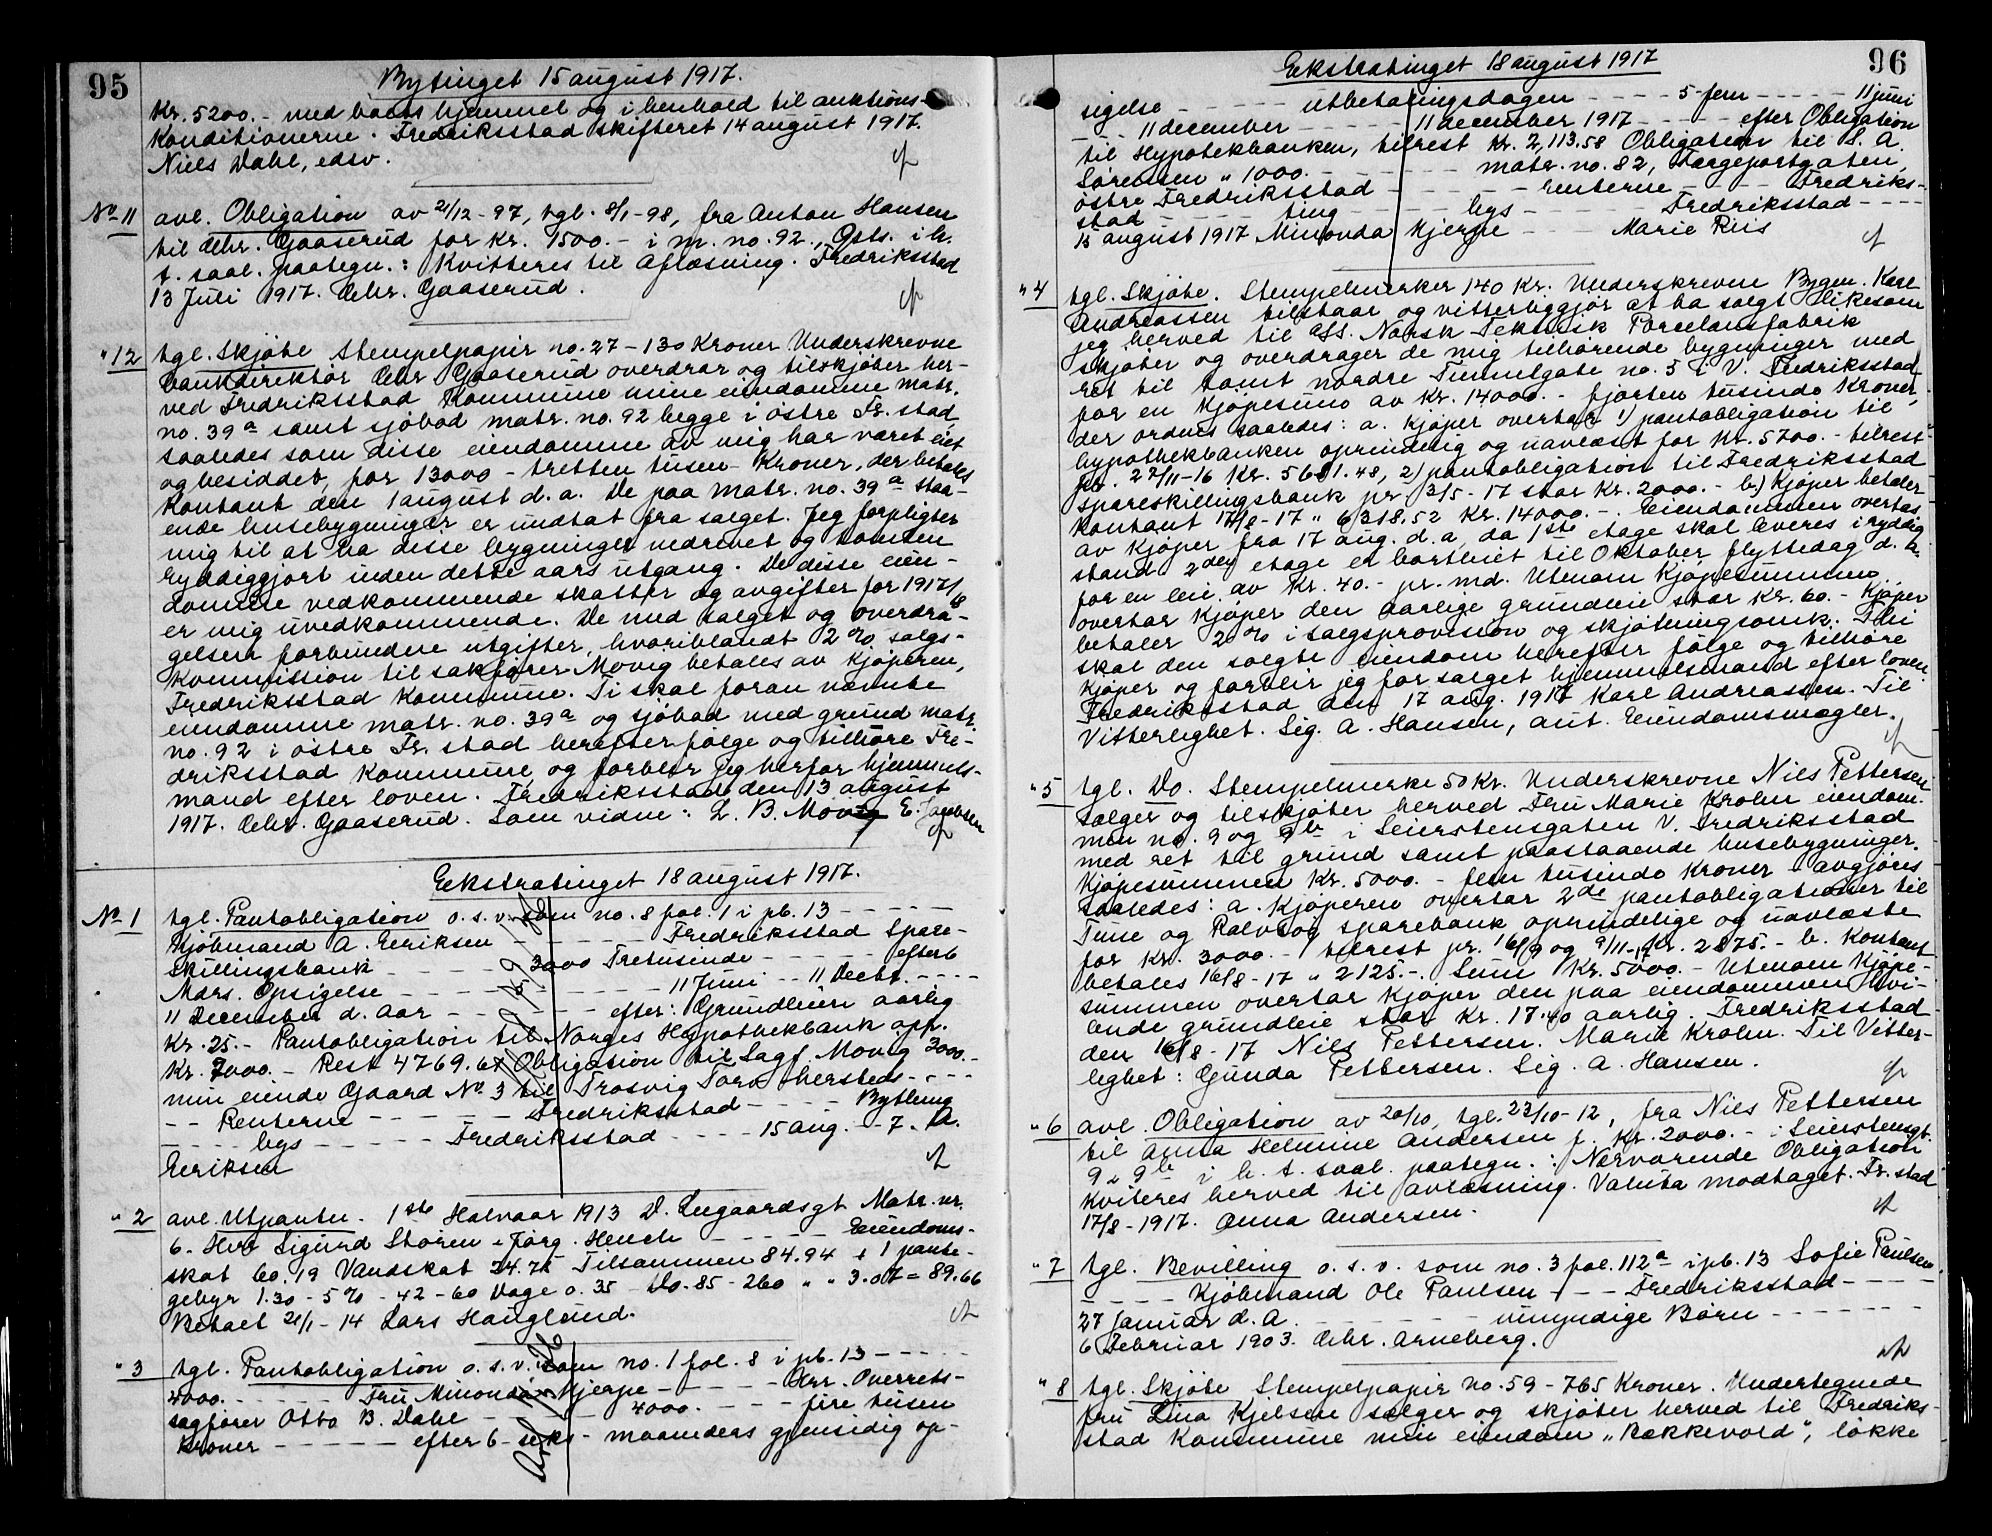 95
Bytinget 15 august 1917.
Kr. 5200.- med hvets hjemmel og i henhold til auktions-
konditionerne. Fredriksstad skifteret 14 august 1917.
Niels Dahl, edsv.
No 11 avl. Obligation av 21/12-97, tgl. 8/1-98, fra Anton Hansen
til Chr. Gaaserud for Kr. 1500.- i m. no. 92., Østs. i h.
t. saal. paategn.: Kvitteres til Aflæsning. Fredriksstad
13 Juli 1917. Chr. Gaaserud.
" 12 tgl. Skjøte Stempelpapir no. 27 - 130 Kroner Underskrevne
bankdirektør Chr Gaaserud overdrar og tilskjøter her-
ved Fredriksstad Kommune mine eiendomme matr.
no. 39a samt sjøbod matr. no. 92 begge i østre Fr. stad
saaledes som disse eiendomme av mig har været eiet
og besiddet, for 13000 - tretten tusen - Kroner, der betales
kontant den 1 august d. a. De paa matr. no. 39a staa-
ende husebygninger er undtat fra salget. Jeg forpligter
mig til at ha disse bygninger nedrevet og tomten
ryddiggjort inden dette aars utgang. De disse eien-
domme vedkommende skatter og avgifter for 1917/18
er mig uvedkommende. De med salget og overdra-
gelsen forbundne utgifter, hvoriblandt 2% salgs-
kommission til sakfører Movig betales av Kjøperen,
Fredriksstad Kommune. Ti skal foran nævnte
eiendomme matr. no. 39a og sjøbod med grund matr.
no. 92 i østre Fr. stad herefter følge og tilhøre Fre-
driksstad Kommune, og forblir jeg herfor hjemmels-
mand efter loven. Fredriksstad den 13 august
1917. Chr. Gaaserud. Som vidne: L. B. Movig E. Jacobsen
Ekstratinget 18 august 1917.
No 1 tgl. Pantobligation o. s. v. som no. 8 fol. 1 i pb. 13 - - - - -
Kjøbmand A. Eeriksen - - - - - Fredriksstad Spare-
skillingsbank - - - - - 3000 Tretusinde - - - - - efter 6
Mdrs. Opsigelse - - - - - 11 Juni - - 11 Decbr. - - - -
11 December d. Aar - - - - - efter: Grundleien aarlig
Kr. 25.- Pantobligation til Norges Hypothekbank opr.
Kr. 7000.- Rest 4769.67 Obligation til Sagf. Movig 3000.-
min eiende Gaard No 3 til Trosvig Torv hersteds - - - -
- - Renterne - - - - - Fredriksstad - - - - - Bytleing
- - - - bys - - - - - Fredriksstad - - - - 15 aug. - 7. A.
Eeriksen
" 2 avl. Utpantn. 1ste Halvaar 1913 D. Leegaardsgt Matr. nr.
6. Hr. Sigurd Støren - Farg. Hench - - - - - Eiendoms-
skat 60.19 Vandskat 24.75 Tilsammen 84.94 + 1 pante-
gebyr 1.30 - 5% - 42 - 60 Dage 0.35 - Do. 85 - 260 " " 3.07 = 89.66
Betalt 21/1-14 Lars Hauglund.
" 3 tgl. Pantobligation o. s. v. som no. 1 fol. 8 i pb. 13 - - - - -
4000. - - - - - Fru Minonda Kjerpe - - - - - Hrr. Overrets-
sagfører Otto B. Dahl - - - - - 4000. - - - - fire tusen
kroner - - - - - efter 6 - seks - maaneders gjensidig op-
96
Ekstratinget 18 august 1917
sigelse - - - - - utbetalingsdagen - - - - 5 - fem - - - - - 11 juni
- - - 11 december - - - - - 11 december 1917 - - - - - efter Obligation
til Hypotekbanken, tilrest Kr. 2,113.58 Obligation til S. A.
Sørensen " 1000. - - - - - matr. no. 82, Færgeportgaten,
østre Fredriksstad - - - - - renterne - - - - Fredriks-
stad - - - - - ting - - - - - bys - - - - - Fredriksstad - - - -
15 august 1917 Minonda Kjerpe - - - Marie Riis
" 4 tgl. Skjøte. Stempelmerker 140 Kr. Underskrevne Bygm. Karl
Andreassen tilstaar og vitterliggjør at ha solgt likesom
jeg herved til A/S. Norsk Teknisk Porcelænsfabrik
skjøter og overdrager de mig tilhørende bygninger med
ret til tomt nordre Tunnelgate no. 5 i V. Fredriksstad
for en Kjøpesum av Kr. 14000.- fjorten tusinde kroner,
der ordnes saaledes: a. Kjøper overtar 1) pantobligation til
hypothekbanken oprindelig og uavlæst for Kr. 5700.- tilrest
pr. 27/11-16 Kr. 5681.48, 2) pantobligation til Fredriksstad
spareskillingsbank pr. 3/5-17 stor Kr. 2000.- b.) Kjøper betaler
kontant 17/8-17 " 6318.52 Kr. 14000.- Eiendommen overtas
av Kjøper fra 17 aug. d. a., da 1ste etage skal leveres i ryddig
stand. 2den etage er bortleiet til Oktober flyttedag d. a.
for en leie av Kr. 40.- pr. md. Utenom Kjøpesummen
overtar Kjøper den aarlige grundleie stor Kr. 60.- Kjøper
betaler 2% i salgsprovision og skjøtningsomk. Thi
skal den solgte eiendom herefter følge og tilhøre
Kjøper og forblir jeg for salget hjemmelsmand efter loven.
Fredriksstad den 17 aug. 1917 Karl Andreassen. Til
Vitterlighet. Sig. A. Hansen, aut. Eiendomsmægler.
" 5 tgl. Do. Stempelmerke 50 Kr. Underskrevne Niels Pettersen
sælger og tilskjøter herved Fru Marie Krohn eiendom-
men no. 9 og 9b i Seierstensgaten V. Fredriksstad
med ret til grund samt paastaaende husebygninger.
Kjøpesummen Kr. 5000.- fem tusinde Kroner - avgjøres
saaledes: a. Kjøperen overtar 2de pantobligationer til
Tune og Rolvsøy sparebank, oprindelige og uavlæste
for Kr. 3000.- tilrest pr. 16/9 og 9/11-17 Kr. 2875.- b. Kontant
betales 16/8-17 " 2125.- Sum Kr. 5000.- Utenom Kjøpe-
summen overtar Kjøper den paa eiendommen hvi-
lende grundleie stor Kr. 17.40 aarlig. Fredriksstad
den 16/8-17 Niels Pettersen. Marie Krohn. Til Vitter-
lighet: Gunda Pettersen. Sig. A. Hansen.
" 6 avl. Obligation av 20/10, tgl. 23/10-12, fra Niels Pettersen
til Anna Helmine Andersen f. Kr. 2000.- i Seierstensgt.
9 & 9b i h. t. saal. paategn.: Nærværende Obligation
kviteres herved til avlæsning. Valuta modtaget. Fr. stad
17/8-1917. Anna Andersen.
" 7 tgl. Bevilling o. s. v. som no. 3 fol. 112a i pb. 13 Sofie Paulsen
- - - - Kjøbmand Ole Paulsen - - - Fredriksstad - - - -
27 Januar d. A. - - - - - umyndige Børn - - - - - -
6 Februar 1903. Chr. Arneberg.
" 8 tgl. Skjøte Stempelpapir no. 59 - 765 Kroner. Undertegnede
fru Lina Kjelsen sælger og skjøter herved til Fredriks-
stad Kommune min eiendom „Bækkevold", løkke